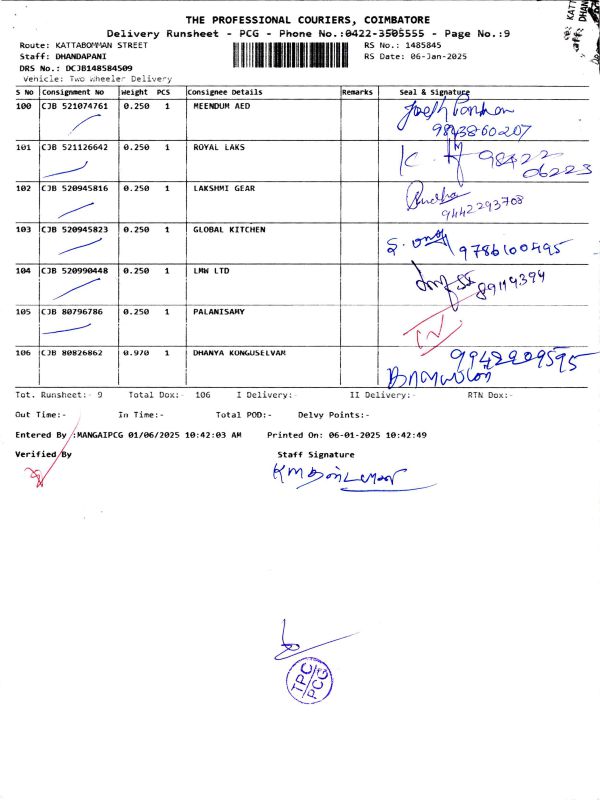 THE PROFESSIONAL COURIERS, COIMBATORE
Delivery Runsheet - PCG - Phone No.:0422-3505555 - Page No.:9
Route: KATTABOMMAN STREET RS No.: 1485845
Staff: DHANDAPANI RS Date: 06-Jan-2025
DRS No.: DCJB148584509
Vehicle: Two Wheeler Delivery
S No Consignment No Weight PCS Consignee Details Remarks Seal & Signature
100 CJB 521074761 0.250 1 MEENDUM AED
9843860207
101 CJB 521126642 0.250 1 ROYAL LAKS
98422
06223
102 CJB 520945816 0.250 1 LAKSHMI GEAR
9442293708
103 CJB 520945823 0.250 1 GLOBAL KITCHEN
9786100495
104 CJB 520990448 0.250 1 LMW LTD
105 CJB 80796786 0.250 1 PALANISAMY
106 CJB 80826862 0.970 1 DHANYA KONGUSELVAM
9942909595
Tot. Runsheet:- 9 Total Dox:- 106 I Delivery:- II Delivery:- RTN Dox:-
Out Time:- In Time:- Total POD:- Delvy Points:-
Entered By :MANGAIPCG 01/06/2025 10:42:03 AM Printed On: 06-01-2025 10:42:49
Verified By Staff Signature
TPC
PCG